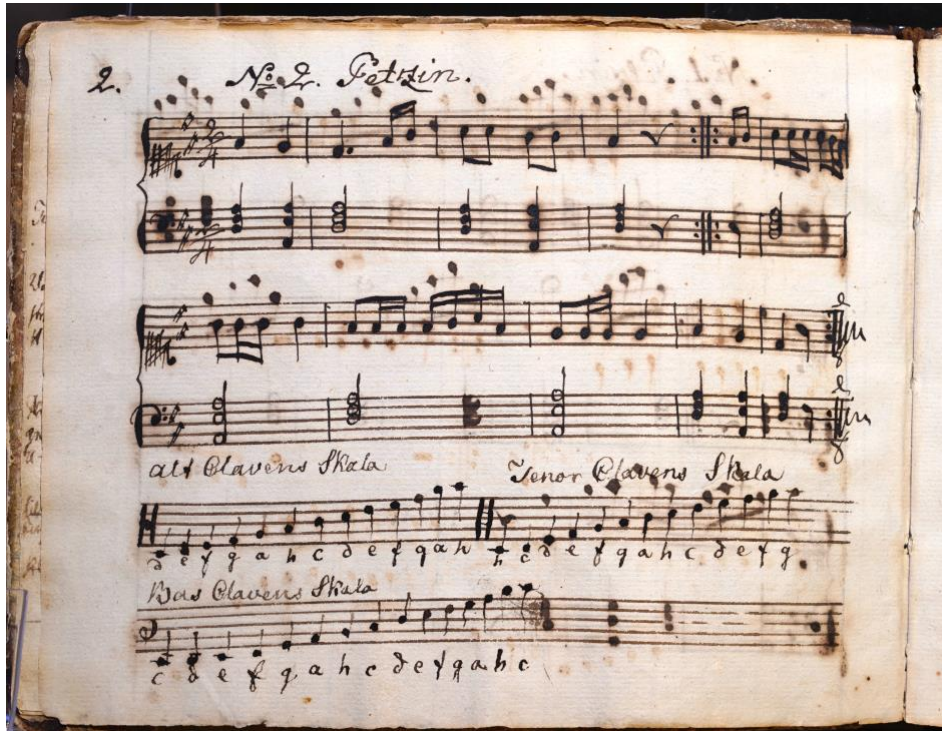 2. No. 2. Fetzin.
2/4
2/4
alt Clavens Skala Tenor Clavens Skala
d e f g a h c d e f g a h h c d e f g a h c d e f g
Bas Clavens Skala
c d e f g a h c d e f g a h c